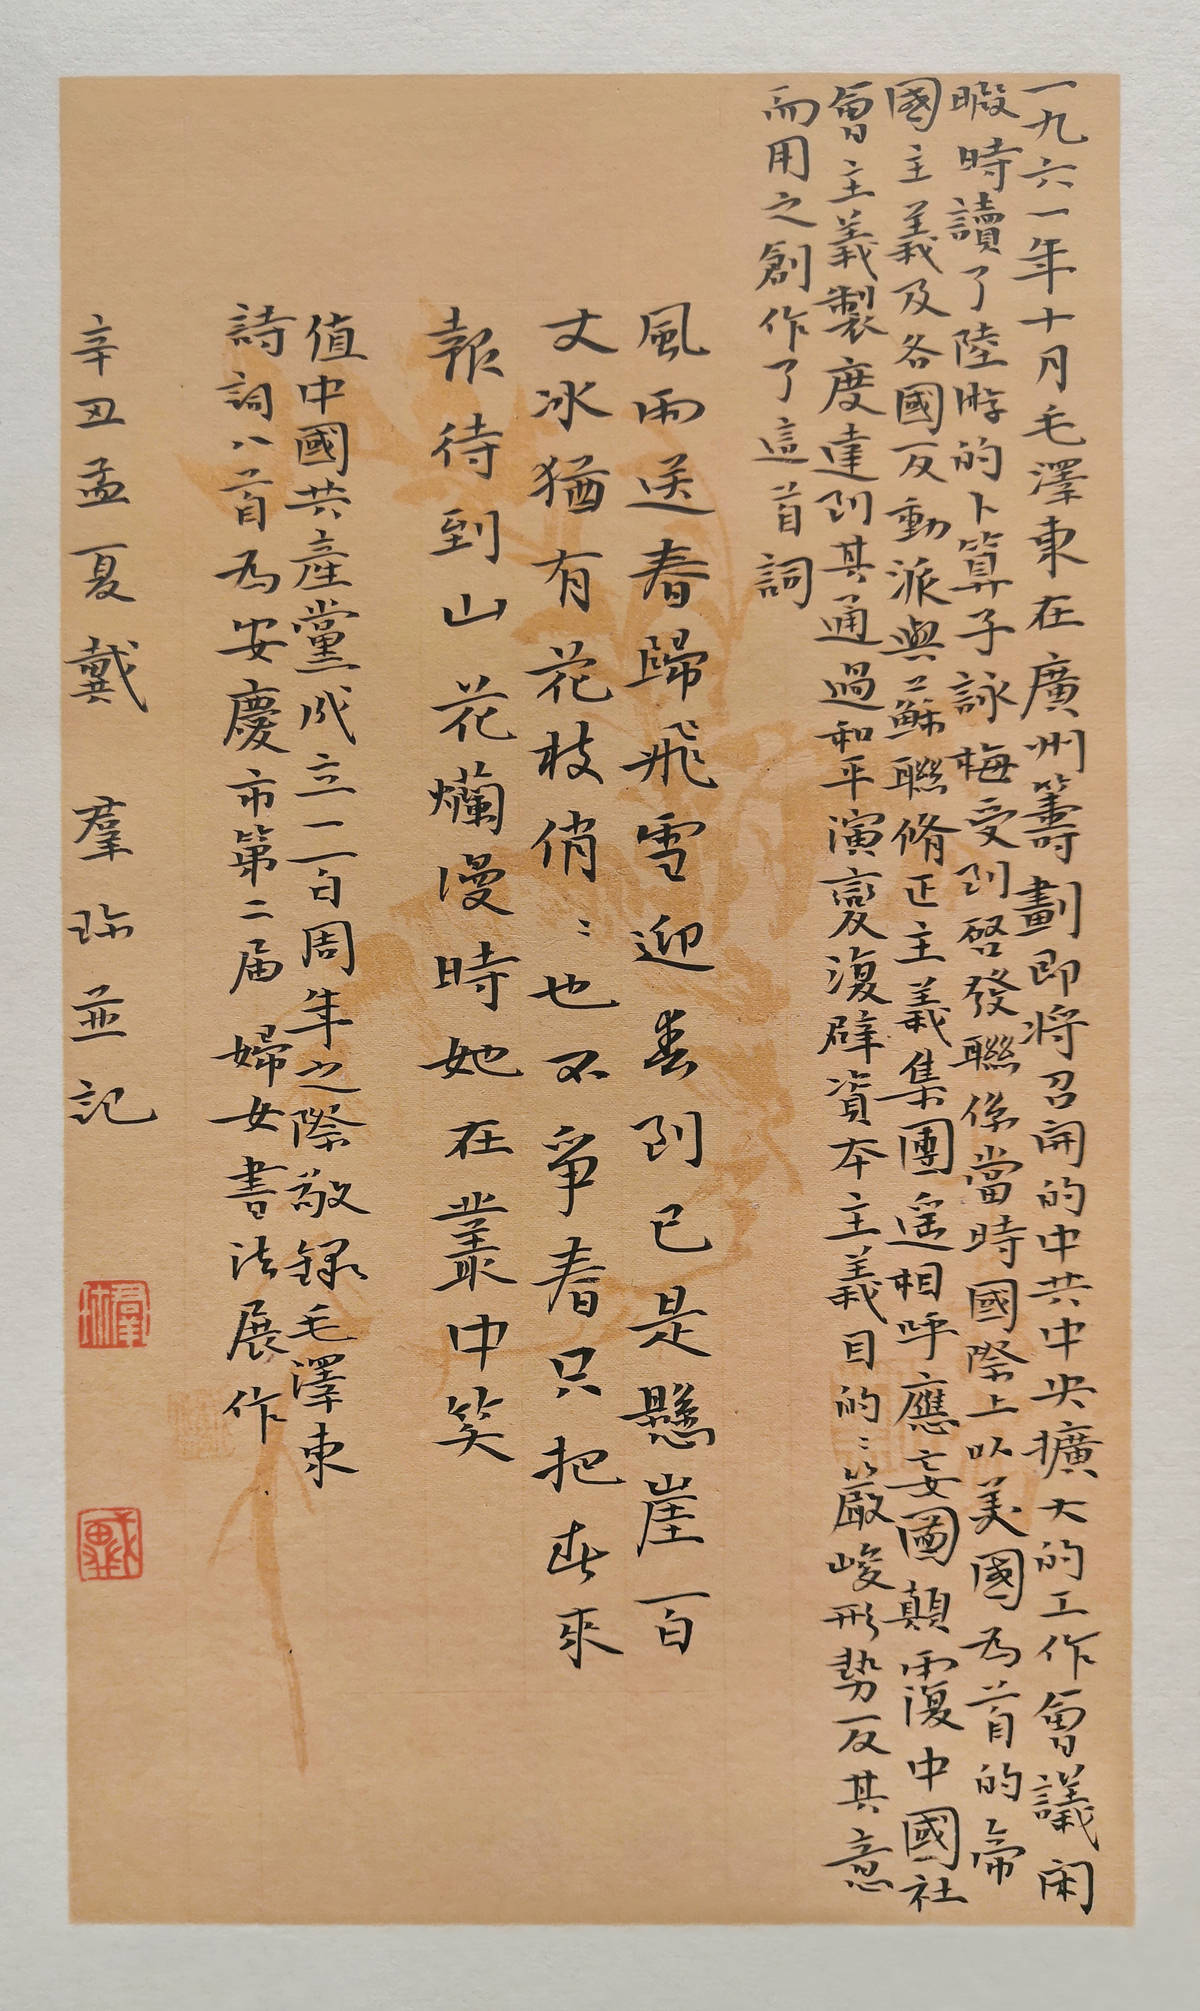 一九六一年十月毛澤東在廣州籌劃即將召開的中共中央擴大的工作會議閑
暇時讀了陸游的卜算子詠梅受到啓發聯係當時國際上以美國為首的帝
國主義及各國反動派與以蘇聯脩正主義集團遥相呼應妄圖顛覆中國社
會主義製度達到其通過和平演變復辟資本主義目的的嚴峻形勢反其意
而用之創作了這首詞
風雨送春歸飛雪迎春到已是懸崖百
丈冰猶有花枝俏俏也不爭春只把春來
報待到山花爛漫時她在叢中笑
值中國共產黨成立一百周年之際敬録毛澤東
詩詞八首為安慶市第二届婦女書法展作
辛丑孟夏戴 羣珎並記
羣珎
戴